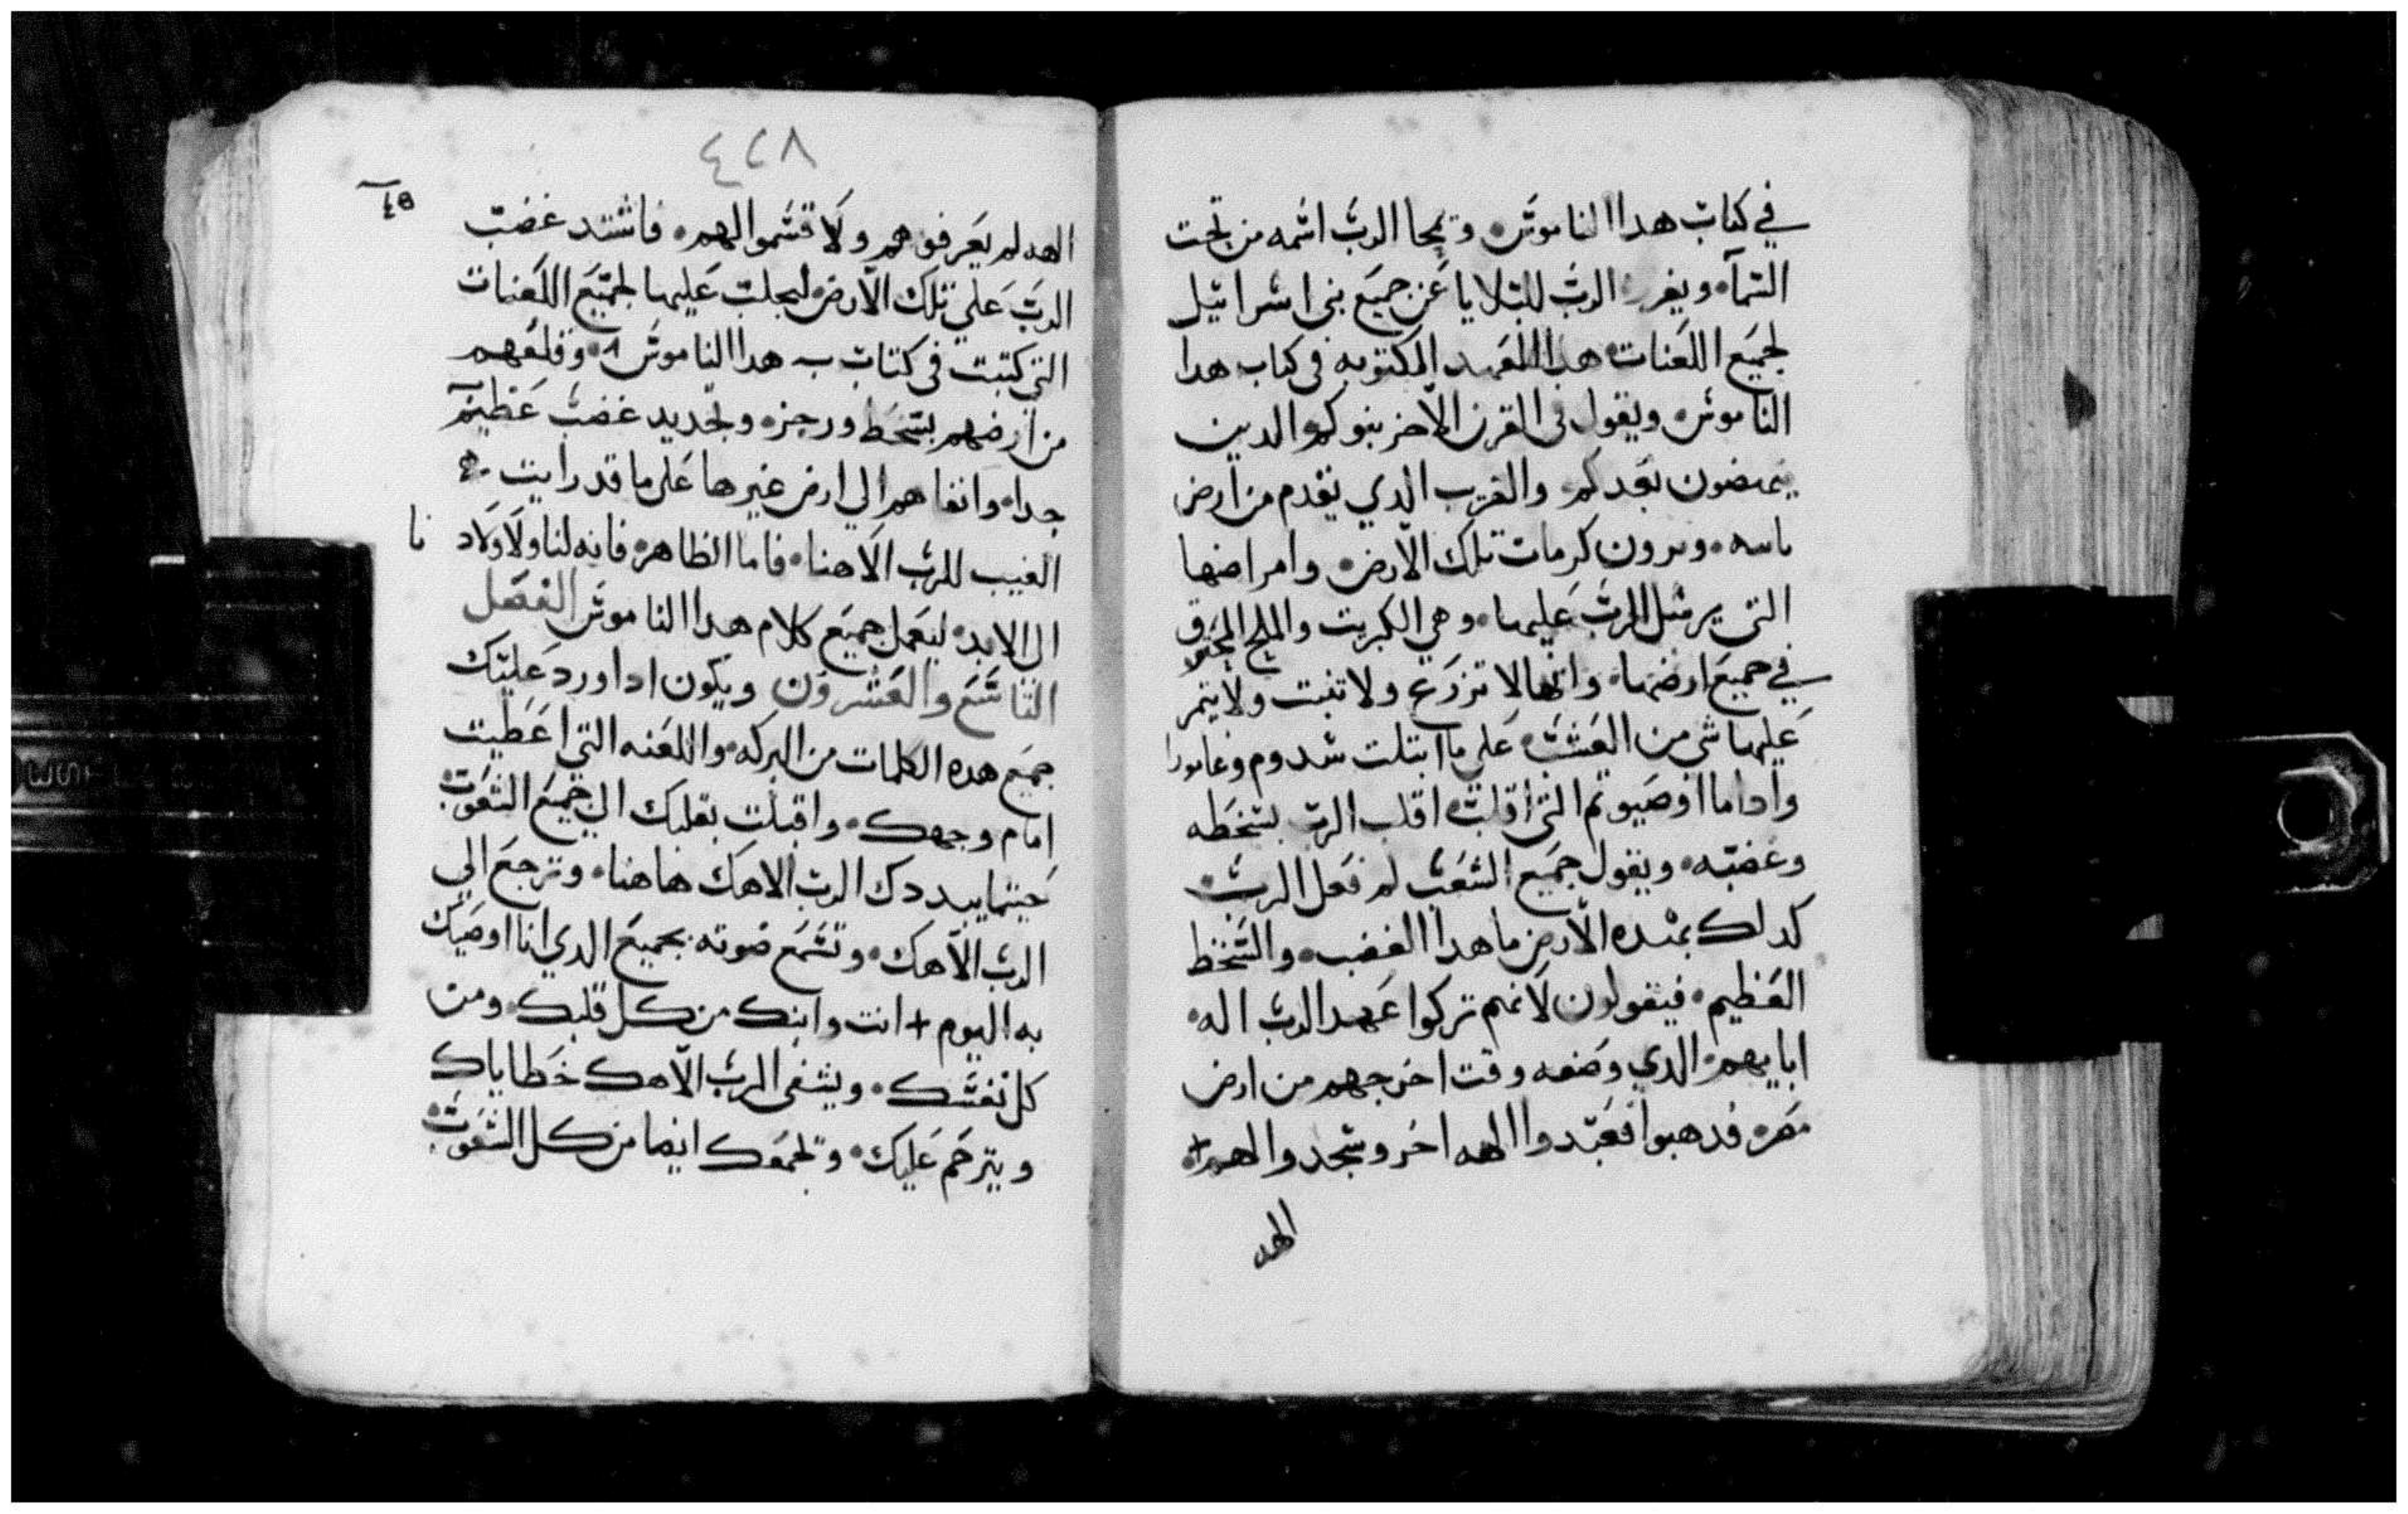 في كتاب هدا الناموس، ويمحا الرب اسمه من تحت
السمآء ويفرز الرب للبلايا عن جميع بني اسراييل
لجميع اللعنات هدا العهد المكتوبه في كتاب هدا
الناموس، ويقول في القرن الاخر بنوكم الدين
ينهضون بعدكم، والغريب الدي يقدم من ارض
ويرون كرمات تلك الارض، وامراضها
التي يرسل الرب عليها، وهي الكبريت والملح المحترق
في جميع ارضها، وانها لا تزرع ولا تنبت ولا يثمر
عليها شي من العشب، على ما ابتلت سدوم وغامورا
واداما التي اقلب الرب بسخطه
وغضبه، ويقول جميع الشعب لم فعل الرب،
كدلك بهده الارض ما هدا الغضب، والسخط
العظيم، فيقولون لانهم تركوا عهد الرب اله،
اباييهم، الدي وضعه وقت اخرجهم من ارض
مصر، فدهبوا فعبدوا الهه اخر وسجدوا لهم،
الهه
٤٢٨
الهه لم يعرفوهم ولا قسموا لهم، فاشتد غضب
الرب على تلك الارض، ليجلب عليها لجميع اللعنات
التي كتبت في كتاب هدا الناموس، وقلعهم
من ارضهم بسخط ورجز، وتجديد غضب عظيم
جدا، وانفاهم الي ارض غيرها على ما قد رايت
الغيب للرب الاهنا، فاما الظاهر، فانه لنا ولاولاد نا
الى الابد، ليعمل جميع كلام هدا الناموس الفصل
التاسع والعشرون ويكون ادا ورد عليك
جميع هده الكلمات من البركه، واللعنه التي اعطيت
امام وجهك، واقبلت بقلبك الي جميع الشعوب،
حيتما يبددك الرب الاهك هاهنا، وترجع الي
الرب الاهك، وتسمع صوته بجميع الدي انا اوصيك
به اليوم + انت وابنك من كل قلبك، ومن
كل نفسك، ويشفى الرب الاهك خطاياك
ويترحم عليك، وتجمعك ايضا من كل الشعوب،